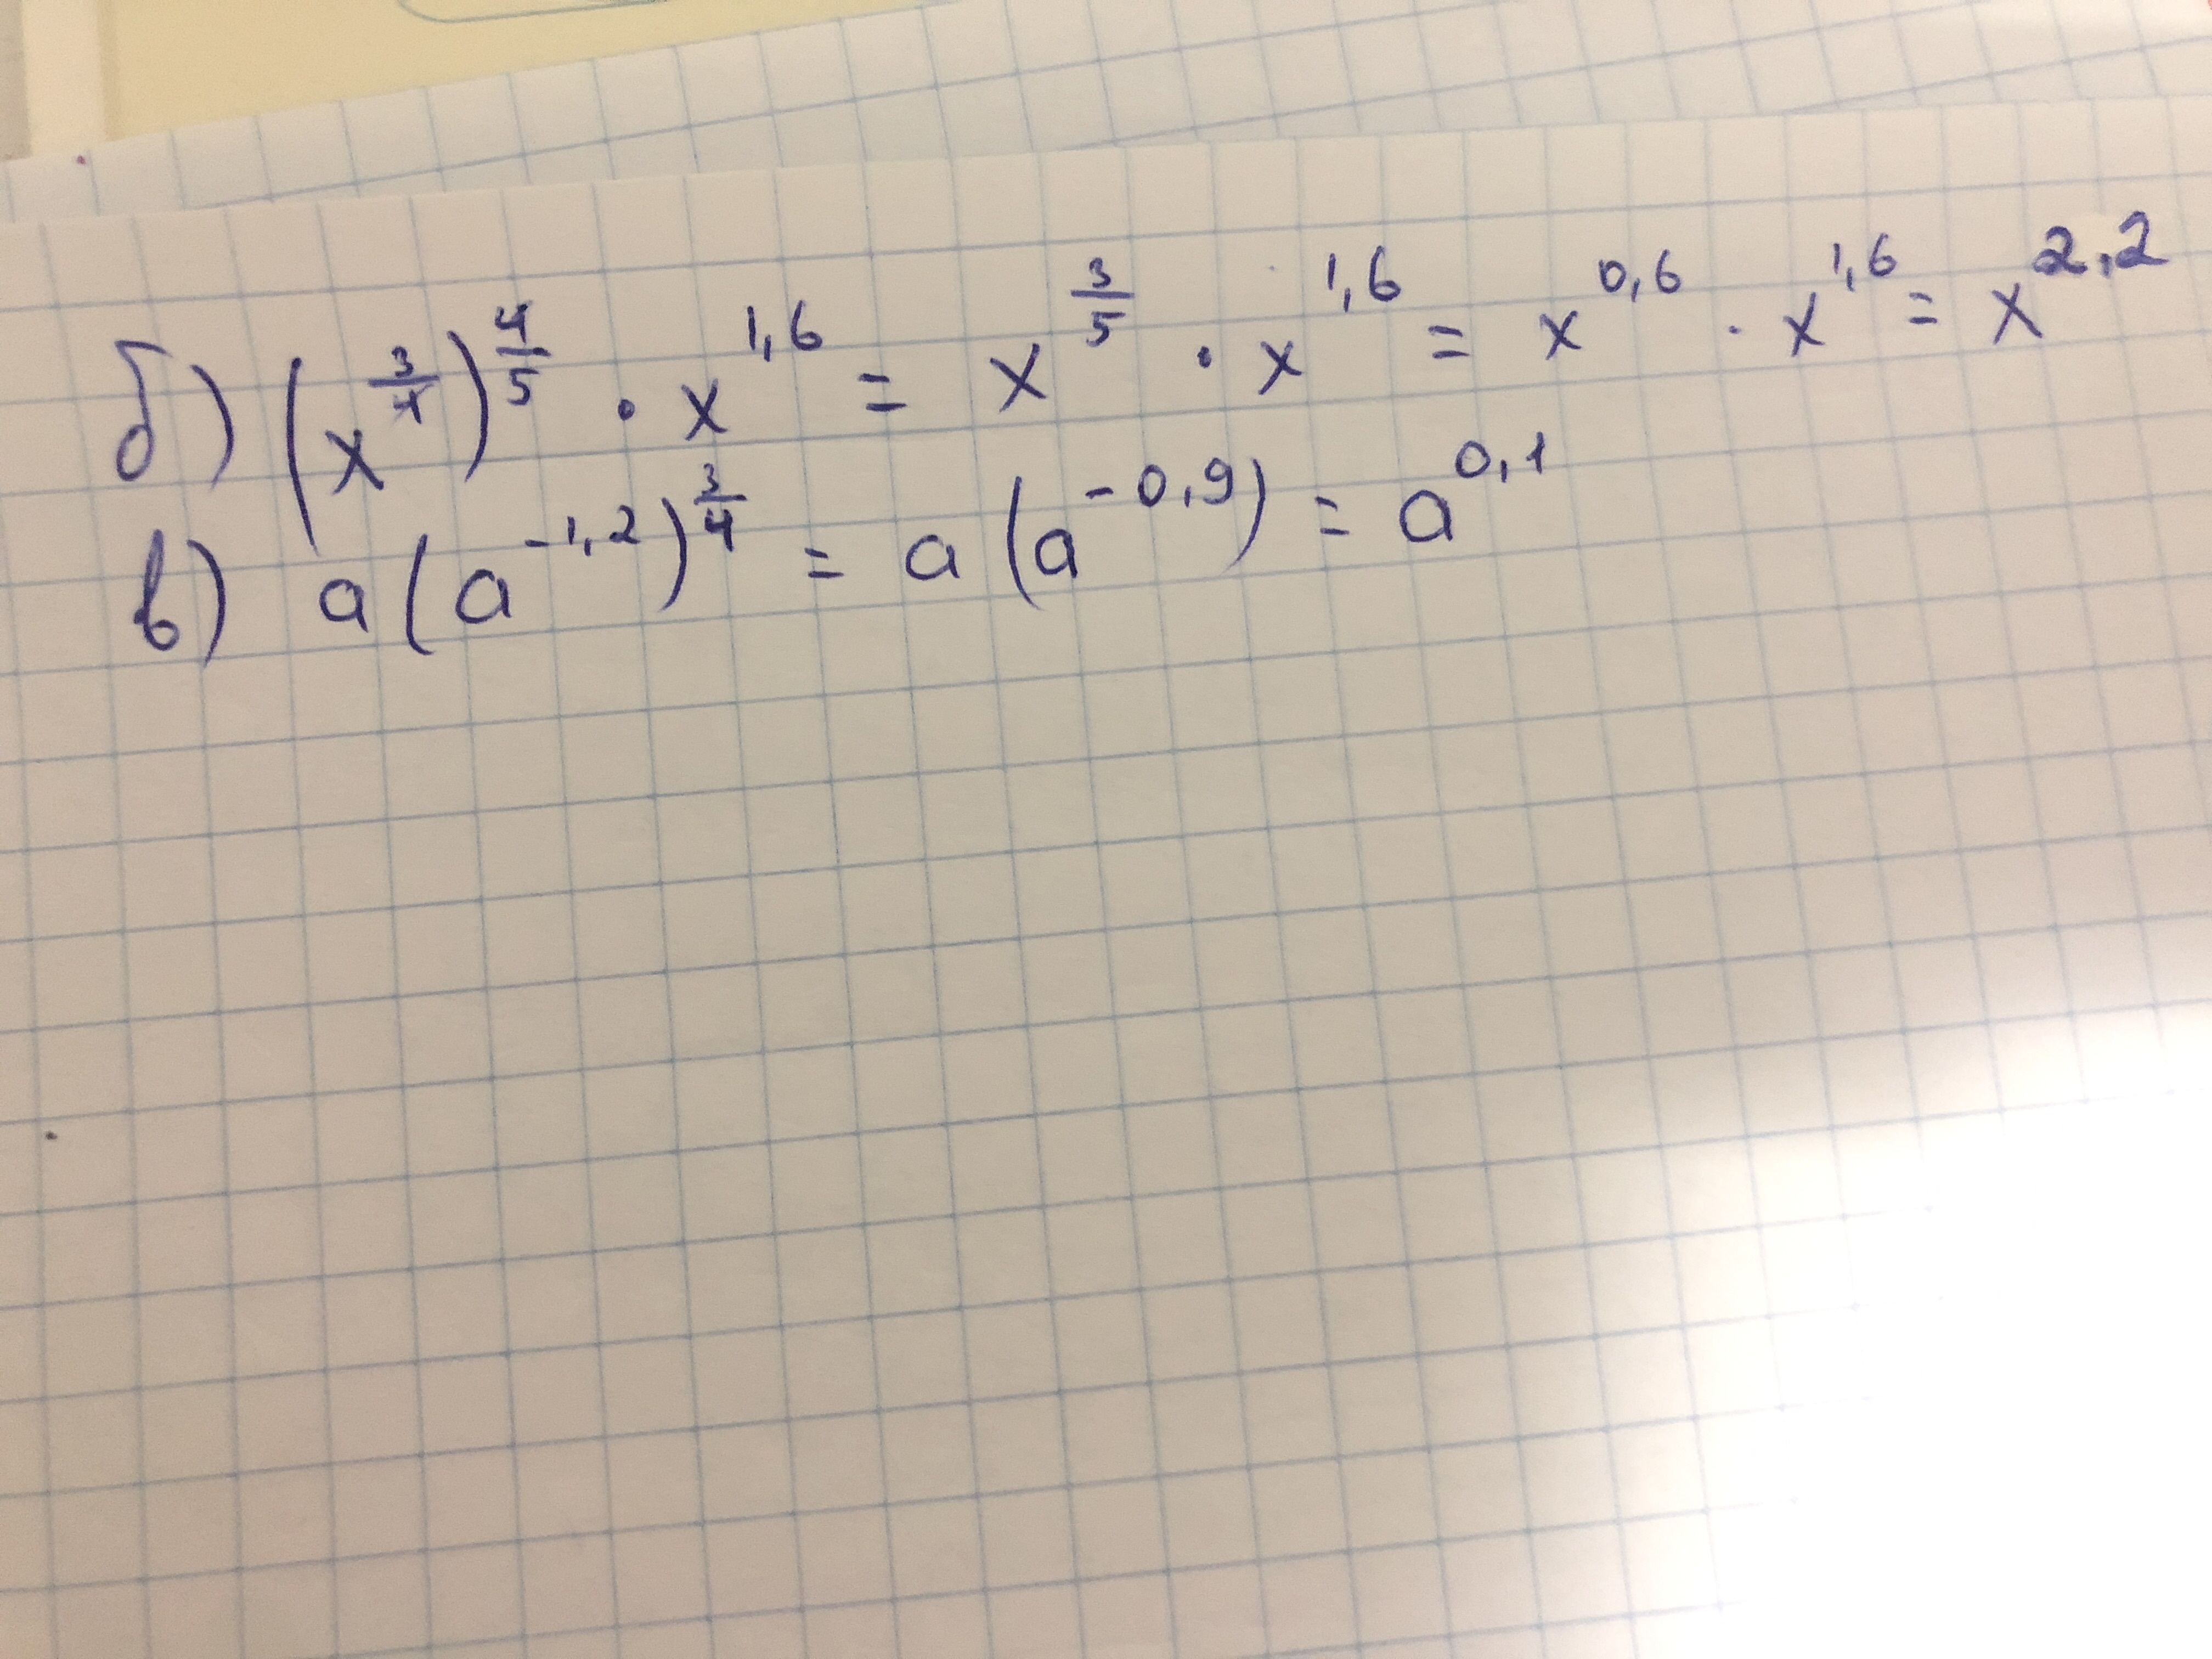 б) (x^{\frac{3}{4}})^{\frac{4}{5}} · x^{1,6} = x^{\frac{3}{5}} · x^{1,6} = x^{0,6} · x^{1,6} = x^{2,2}
в) a(a^{-1,2})^{\frac{3}{4}} = a(a^{-0,9}) = a^{0,1}